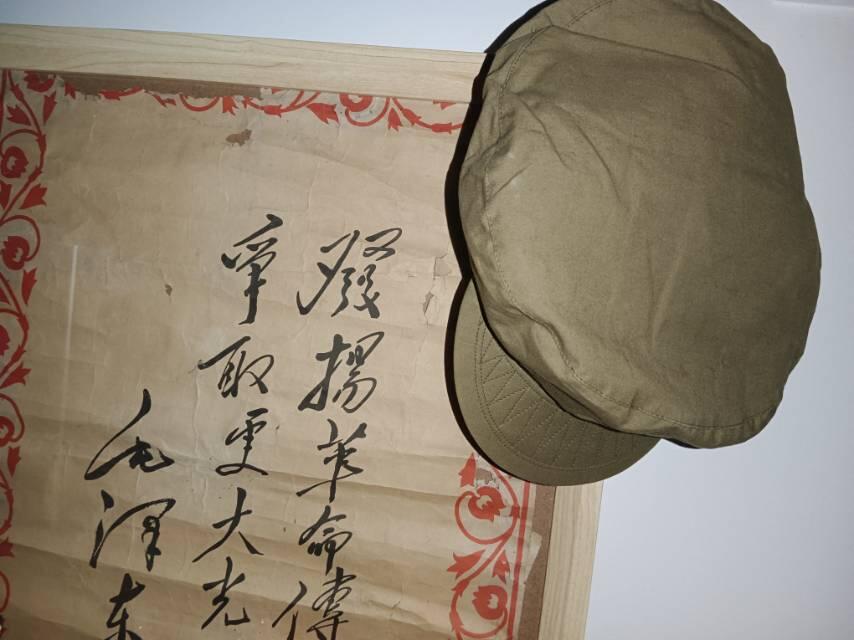 發揚革命傳
爭取更大光
毛澤东